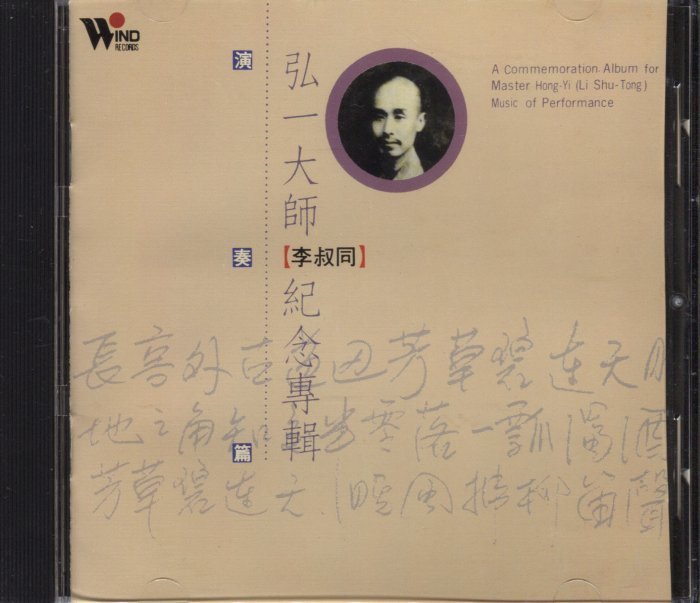 WIND
RECORDS
演奏篇
弘一大師
【李叔同】
紀念專輯
A Commemoration Album for
Master Hong-Yi (Li Shu-Tong)
Music of Performance
長亭外古道邊芳草碧連天
地之角知交半零落一瓢濁酒
芳草碧連天晚風拂柳笛聲